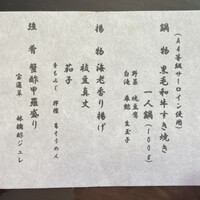 (A4等級サーロイン使用)
鍋物 黒毛和牛すき焼き
一人鍋(100g)
野菜 焼豆腐
白滝 麩 生玉子
揚物 海老香り揚げ
枝豆真丈
茄子
強肴 蟹酢甲羅盛り
林檎酢ジュレ